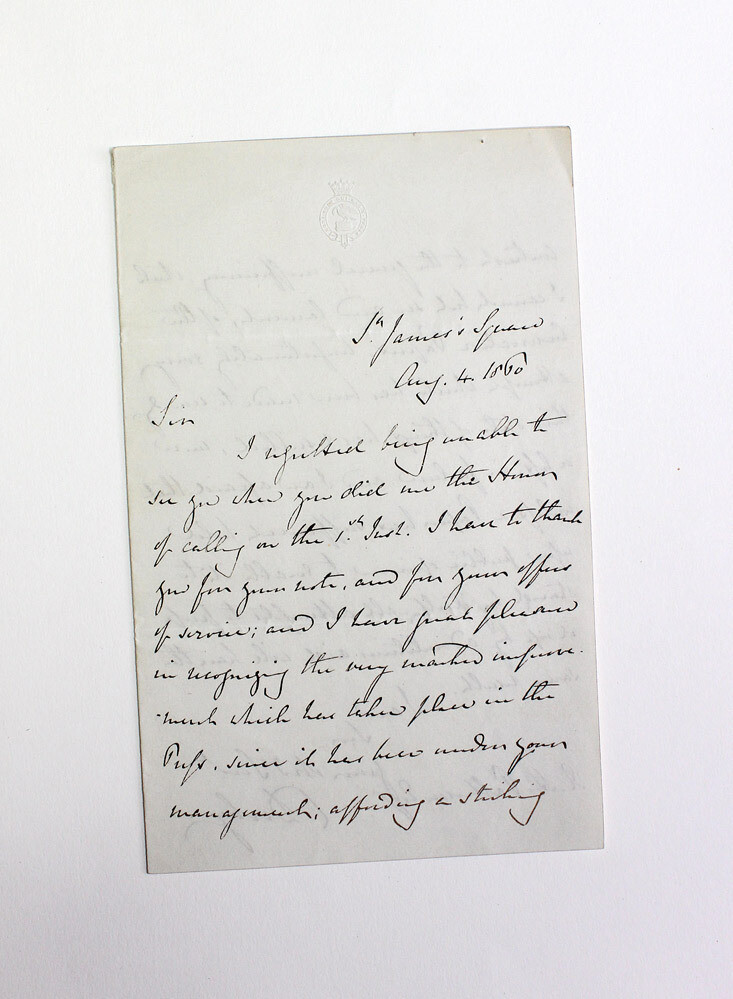 St. James's Square
Aug. 4. 1860
Sir
I regretted being unable to
see you when you did me the Honor
of calling on the 1st. Inst. I have to thank
you for your note, and for your offers
of service; and I have great pleasure
in recognizing the very marked improve-
-ment which has taken place in the
Press, since it has been under your
management; affording a striking